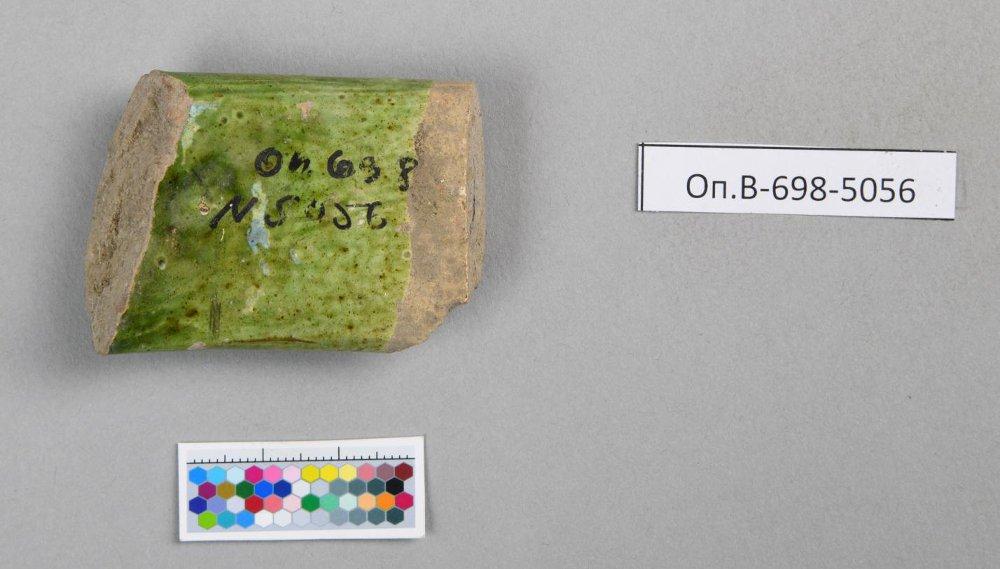 Оп. 698
N 5056
Оп.В-698-5056